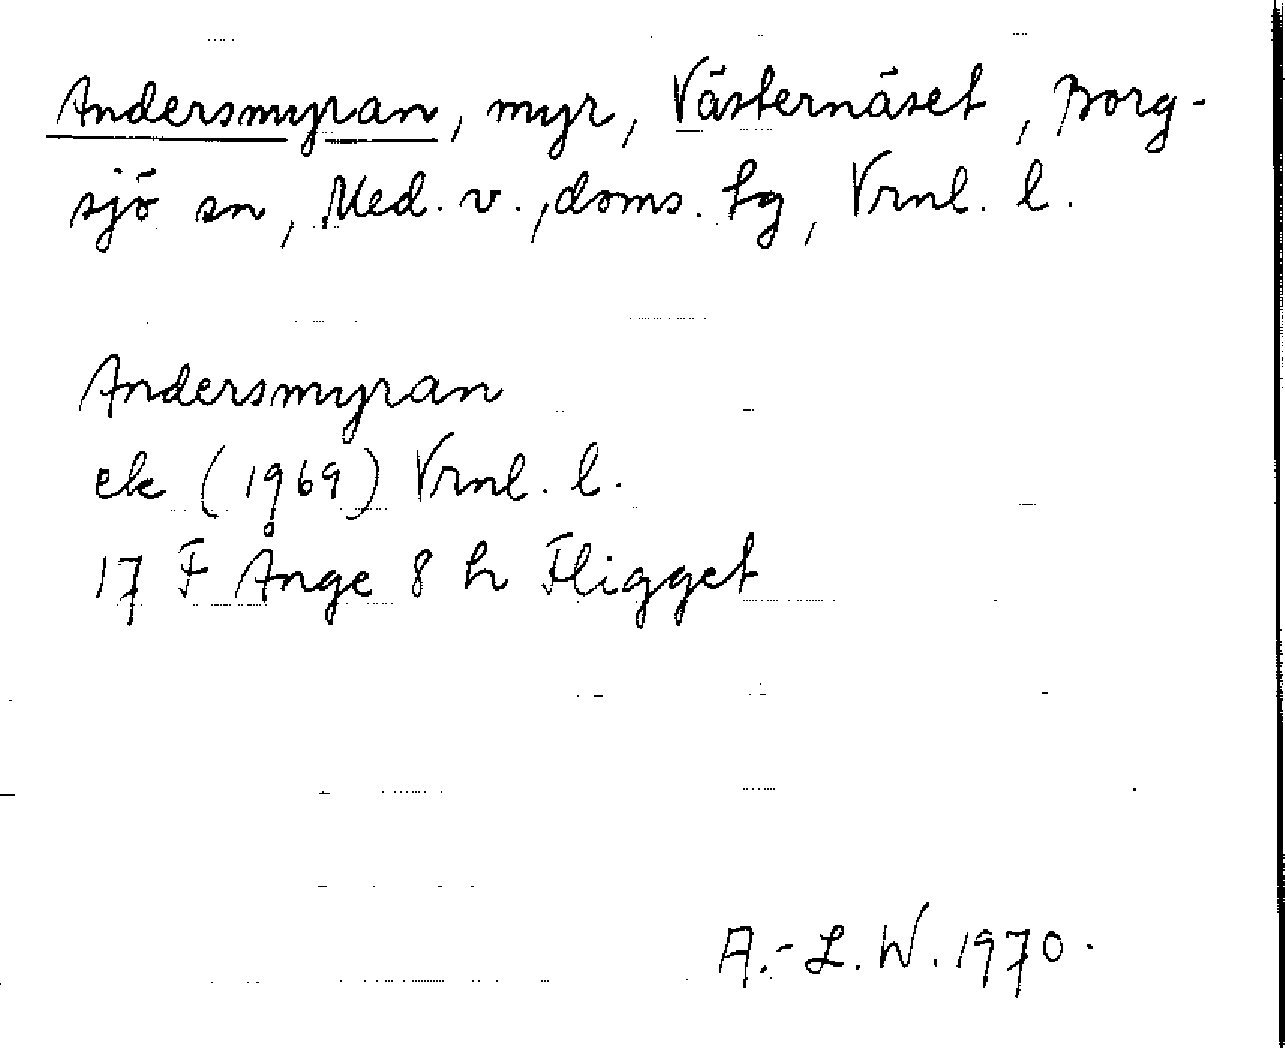 Andersmyran, myr, Västernäset, Borg-
sjö sn, Med. v., doms. hg, Vrnl. l.
Andersmyran
ek (1969) Vrnl. l.
17 F Ånge 8 h Fligget
A.-L. W. 1970.